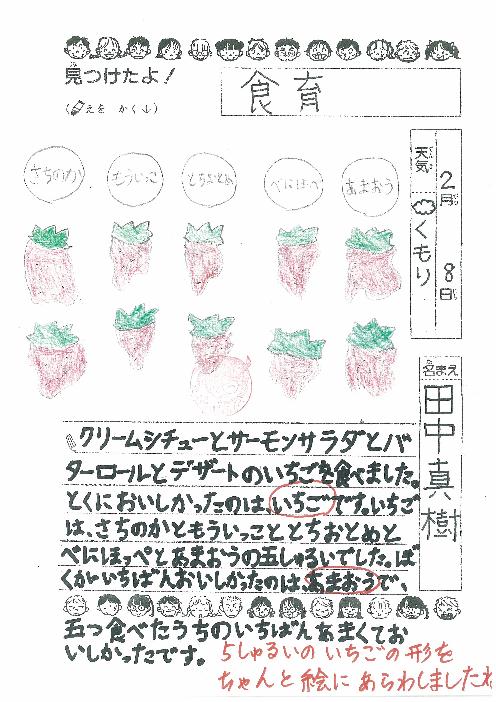 見つけたよ！
(えを かく↓)
食育
天気 くもり
2月 8日
名まえ
田中真樹
さちのか
もういっこ
とちおとめ
べにほっぺ
あまおう
クリームシチューとサーモンサラダとバ
ターロールとデザートのいちごを食べました。
とくにおいしかったのは、いちごです。いちご
は、さちのかともういっことちおとめと
べにほっぺとあまおうの五しゅるいでした。ぼ
くがいちばんおいしかったのはあまおうで、
五つ食べたうちのいちばんあまくてお
いしかったです。
5しゅるいの いちごの 形を
ちゃんと 絵に あらわしましたね